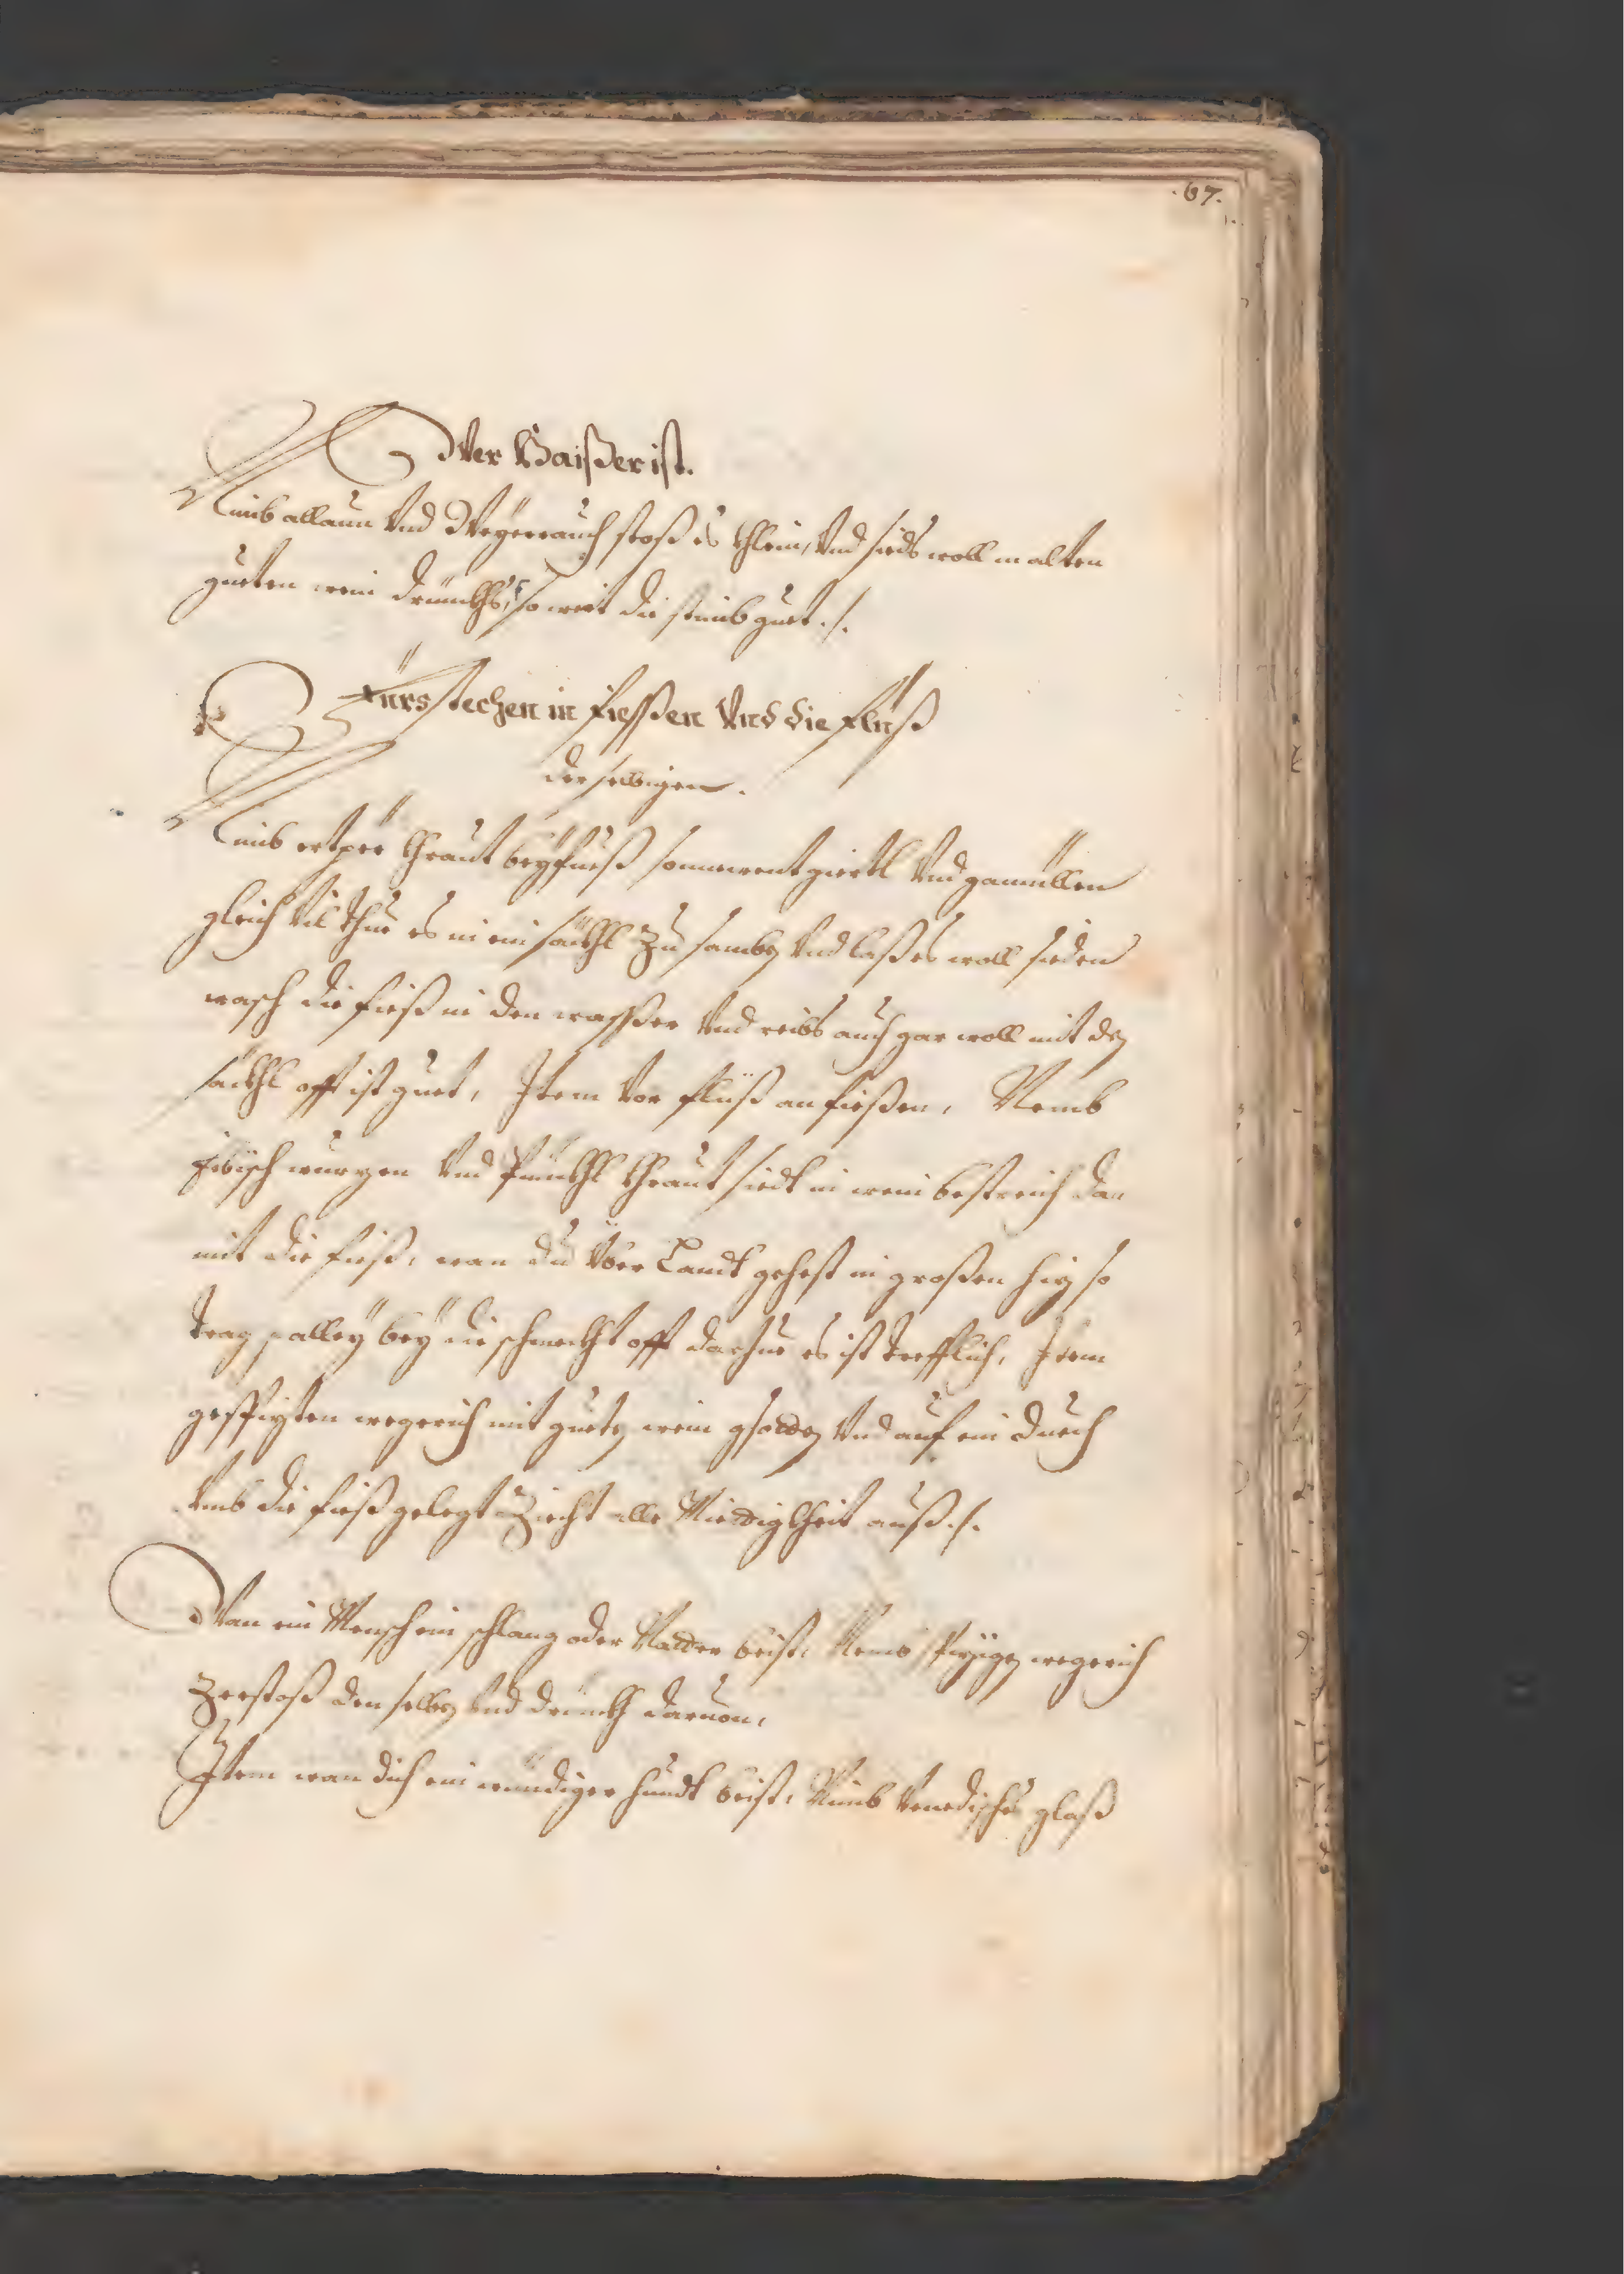 .67.
Wer Haißer ist.
Nimb allaun Vnd Weyerrauch stoß es khlein, Vnd sieds woll in alten
gueten wein drinckhs, so wirt die stimb guet ./.
Fürs stechen in fiessen Vnd die fluß
der selbigen.
Nimb ertper khraut beyfueß sonnwent giertl Vnd gamillen
gleich Vil thue es in ein säckhl Zu samben Vnd laß es woll sieden
wasch die fieß in den wasser Vnd reibs auch gar woll mit den
säckhl offt ist guet, Item Vor flüß an fießen, Nemb
Eibisch wurzen Vnd khraut siedt in wein bestreich dar
mit die fieß, wan du Vber Landt gehest in großen hiz so
trag palley bey dir schmeckht offt darzue es ist trefflich, Item
gespizten wegerich mit gueten wein gsodden Vnd auf ein duech
Vmb die fieß gelegt Zieht alle Miedigkheit auß ./.
Wan ein Mensch ein schlang oder Natter beist, Nemb spiziges wegerich
Zerstoß den selben Vnd drinckh daruon,
Item wan dich ein wündiger hundt beist, Nimb Venedisches glaß